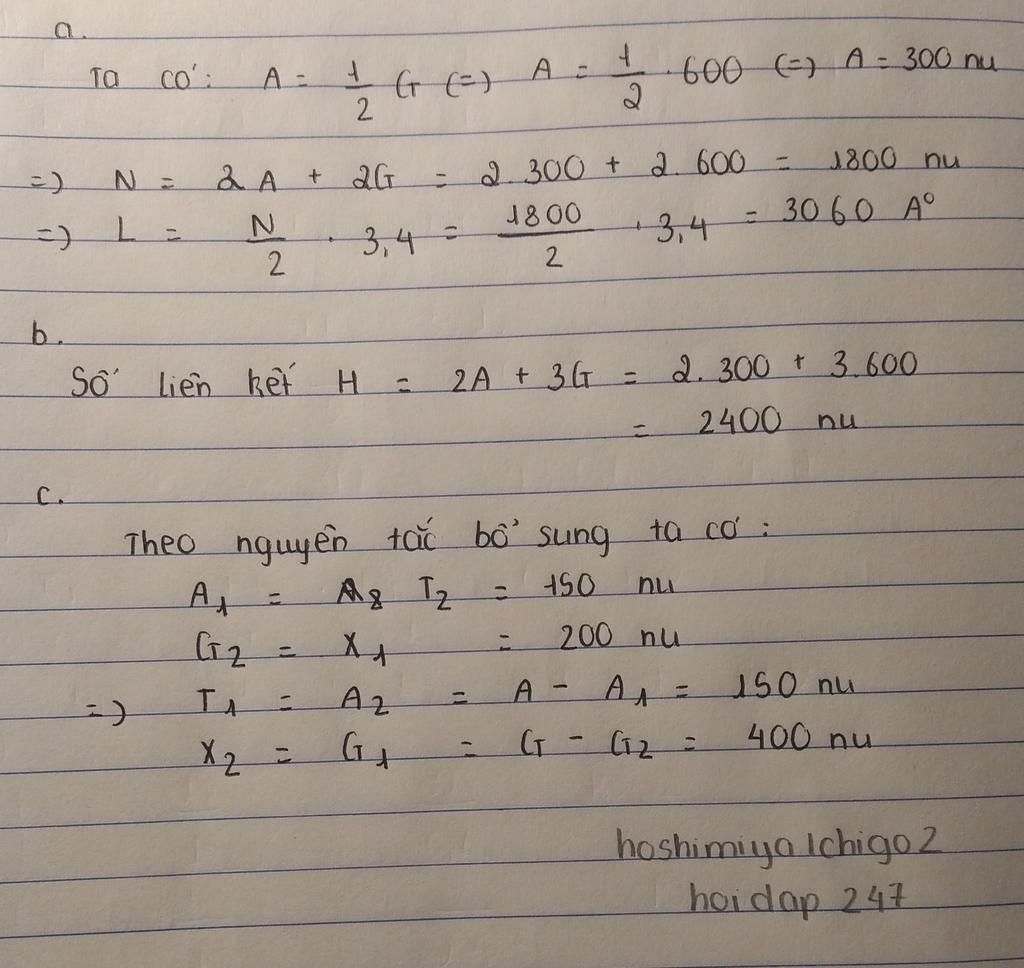 a.
Ta có: A = 1/2 G (=) A = 1/2 . 600 (=) A = 300 nu
=) N = 2A + 2G = 2.300 + 2.600 = 1800 nu
=) L = N/2 . 3,4 = 1800/2 . 3,4 = 3060 A°
b.
Số liên kết H = 2A + 3G = 2.300 + 3.600
= 2400 nu
c.
Theo nguyên tắc bổ sung ta có:
A₁ = T₂ = 150 nu
G₂ = X₁ = 200 nu
=) T₁ = A₂ = A - A₁ = 150 nu
X₂ = G₁ = G - G₂ = 400 nu
hoshimiyaIchigo2
hoidap 247